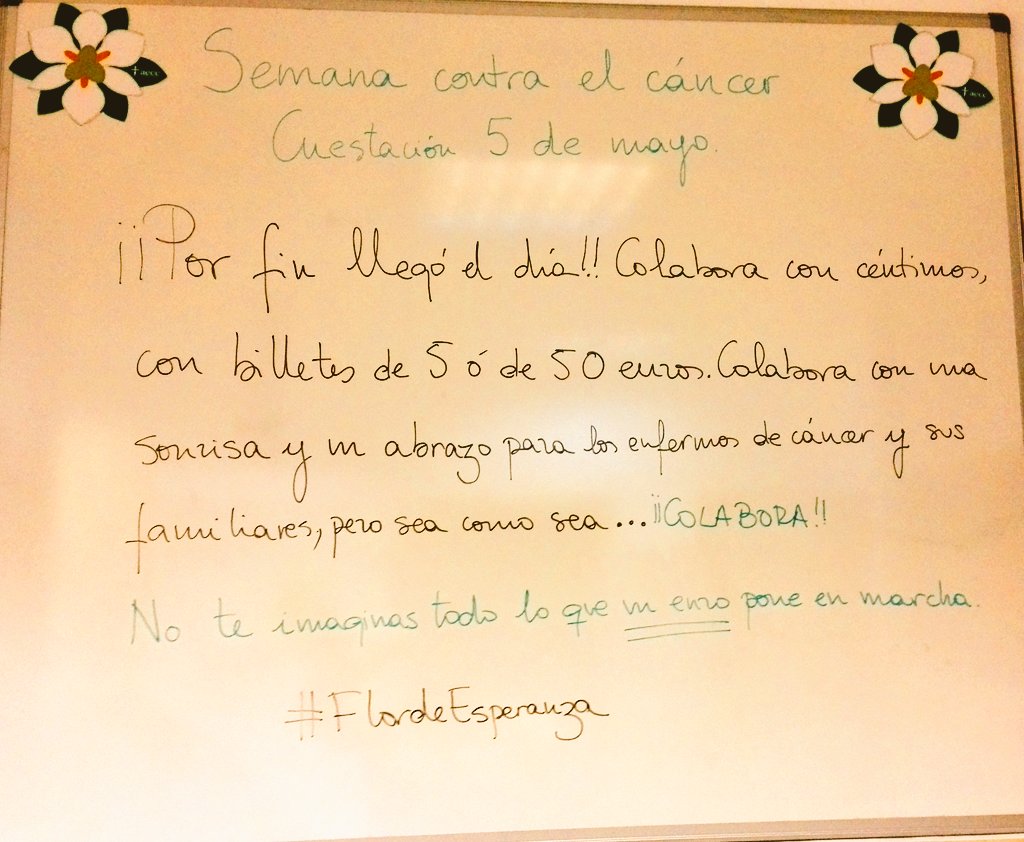 Semana contra el cáncer
Cuestación 5 de mayo.
¡¡Por fin llegó el día!! Colabora con céntimos,
con billetes de 5 ó de 50 euros. Colabora con una
sonrisa y un abrazo para los enfermos de cáncer y sus
familiares, pero sea como sea... ¡¡COLABORA!!
No te imaginas todo lo que un euro pone en marcha.
#FlordeEsperanza
aecc
aecc